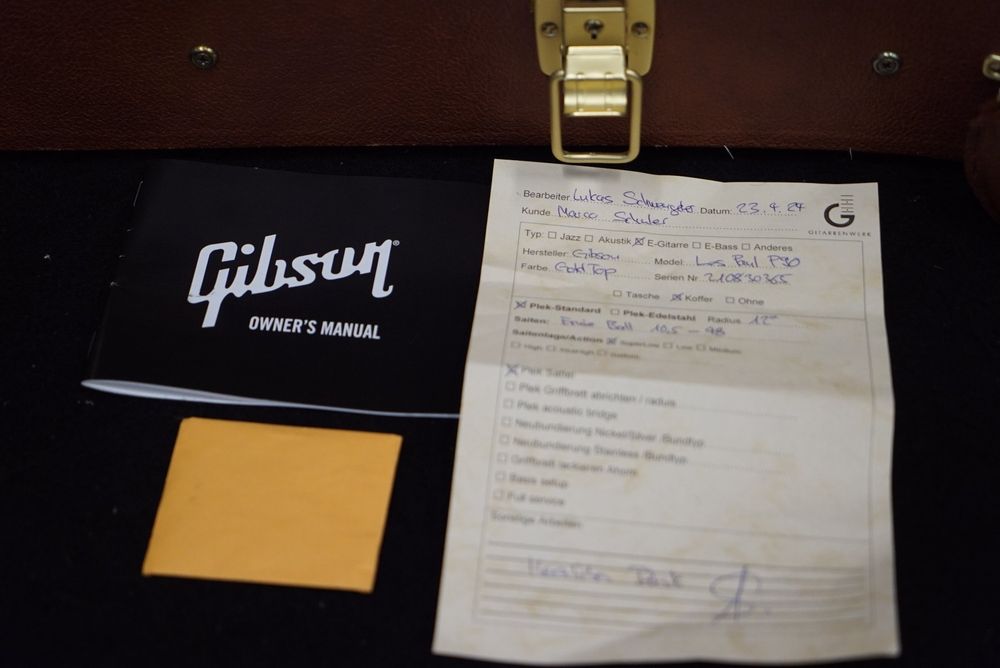 Gibson
OWNER'S MANUAL
Bearbeiter: Lukas Datum: 23.4.24
Kunde: Marco Schuler
G
GITARRENWERK
Typ: ☐ Jazz ☐ Akustik ☒ E-Gitarre ☐ E-Bass ☐ Anderes
Hersteller: Gibson Model: Les Paul P90
Farbe: Gold Top Serien Nr. 210830365
☐ Tasche ☒ Koffer ☐ Ohne
☒ Plek-Standard ☐ Plek-Edelstahl Radius 12"
Saiten: Ernie Ball 10,5 - 48
Saitenlage/Action ☒ SuperLow ☐ Low ☐ Medium
☐ High ☐ ☐
☒ Plek Sattel
☐ Plek Griffbrett abrichten / radius
☐ Plek acoustic bridge
☐ Neubundierung Nickel/Silver /Bundtyp
☐ Neubundierung Stainless /Bundtyp
☐ Griffbrett lackieren Ahorn
☐ Basis setup
☐ Full service
Sonstige Arbeiten
Herzlichen Dank